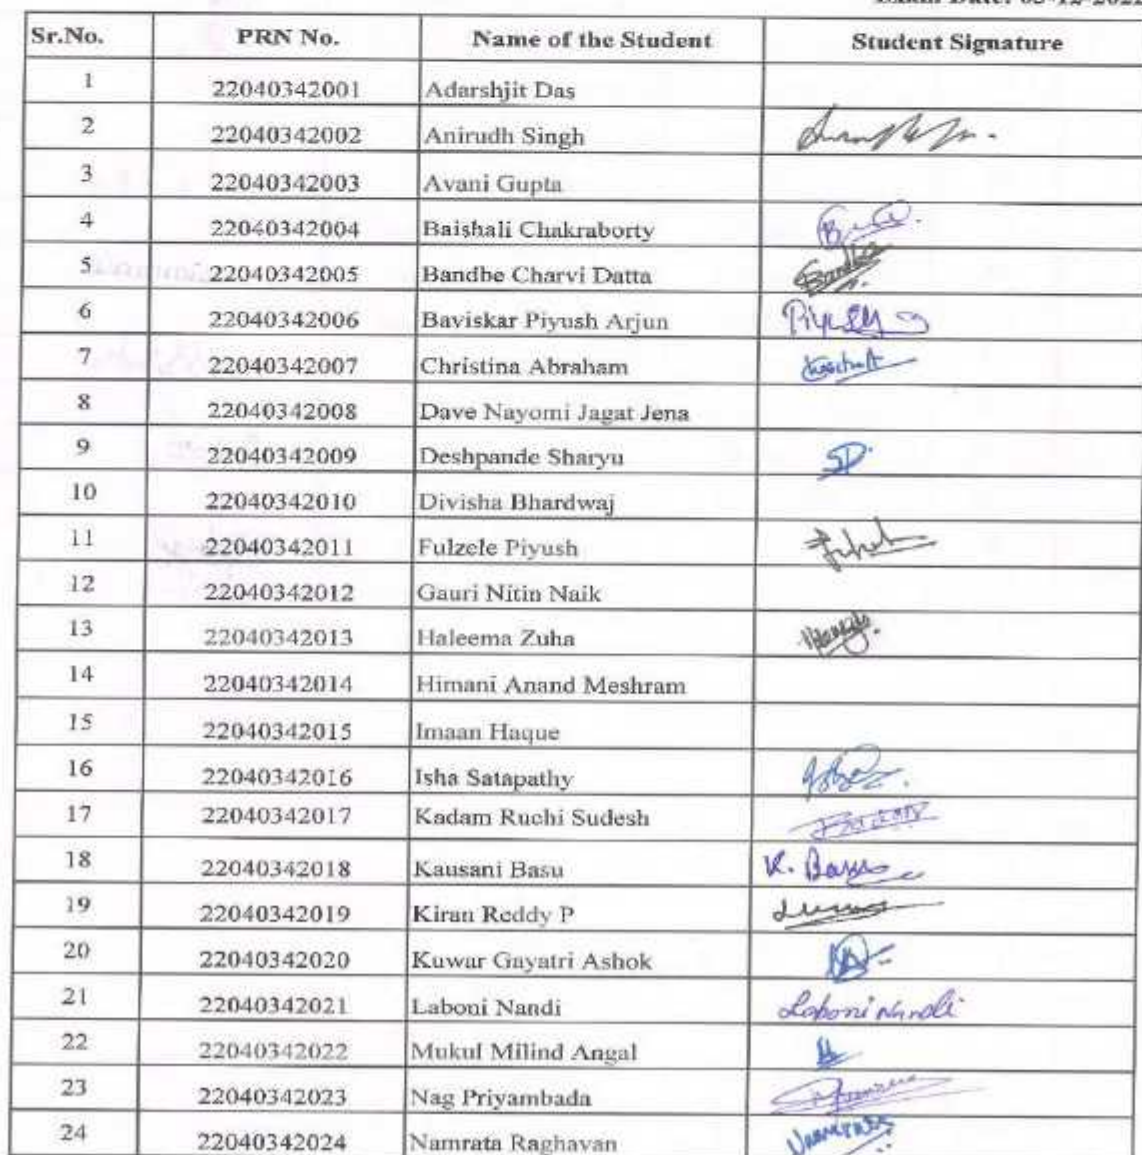 Exam Date: 05-12-2022
Sr.No. PRN No. Name of the Student Student Signature
1 22040342001 Adarshjit Das
2 22040342002 Anirudh Singh
3 22040342003 Avani Gupta
4 22040342004 Baishali Chakraborty
5 22040342005 Bandbe Charvi Datta
6 22040342006 Baviskar Piyush Arjun Piyush
7 22040342007 Christina Abraham
8 22040342008 Dave Nayomi Jagat Jena
9 22040342009 Deshpande Sharyu SD.
10 22040342010 Divisha Bhardwaj
11 22040342011 Fulzele Piyush
12 22040342012 Gauri Nitin Naik
13 22040342013 Haleema Zuha
14 22040342014 Himani Anand Meshram
15 22040342015 Imaan Haque
16 22040342016 Isha Satapathy
17 22040342017 Kadam Ruchi Sudesh
18 22040342018 Kausani Basu K. Basu
19 22040342019 Kiran Reddy P
20 22040342020 Kuwar Gayatri Ashok
21 22040342021 Laboni Nandi Laboni Nandi
22 22040342022 Mukul Milind Angal
23 22040342023 Nag Priyambada
24 22040342024 Namrata Raghavan